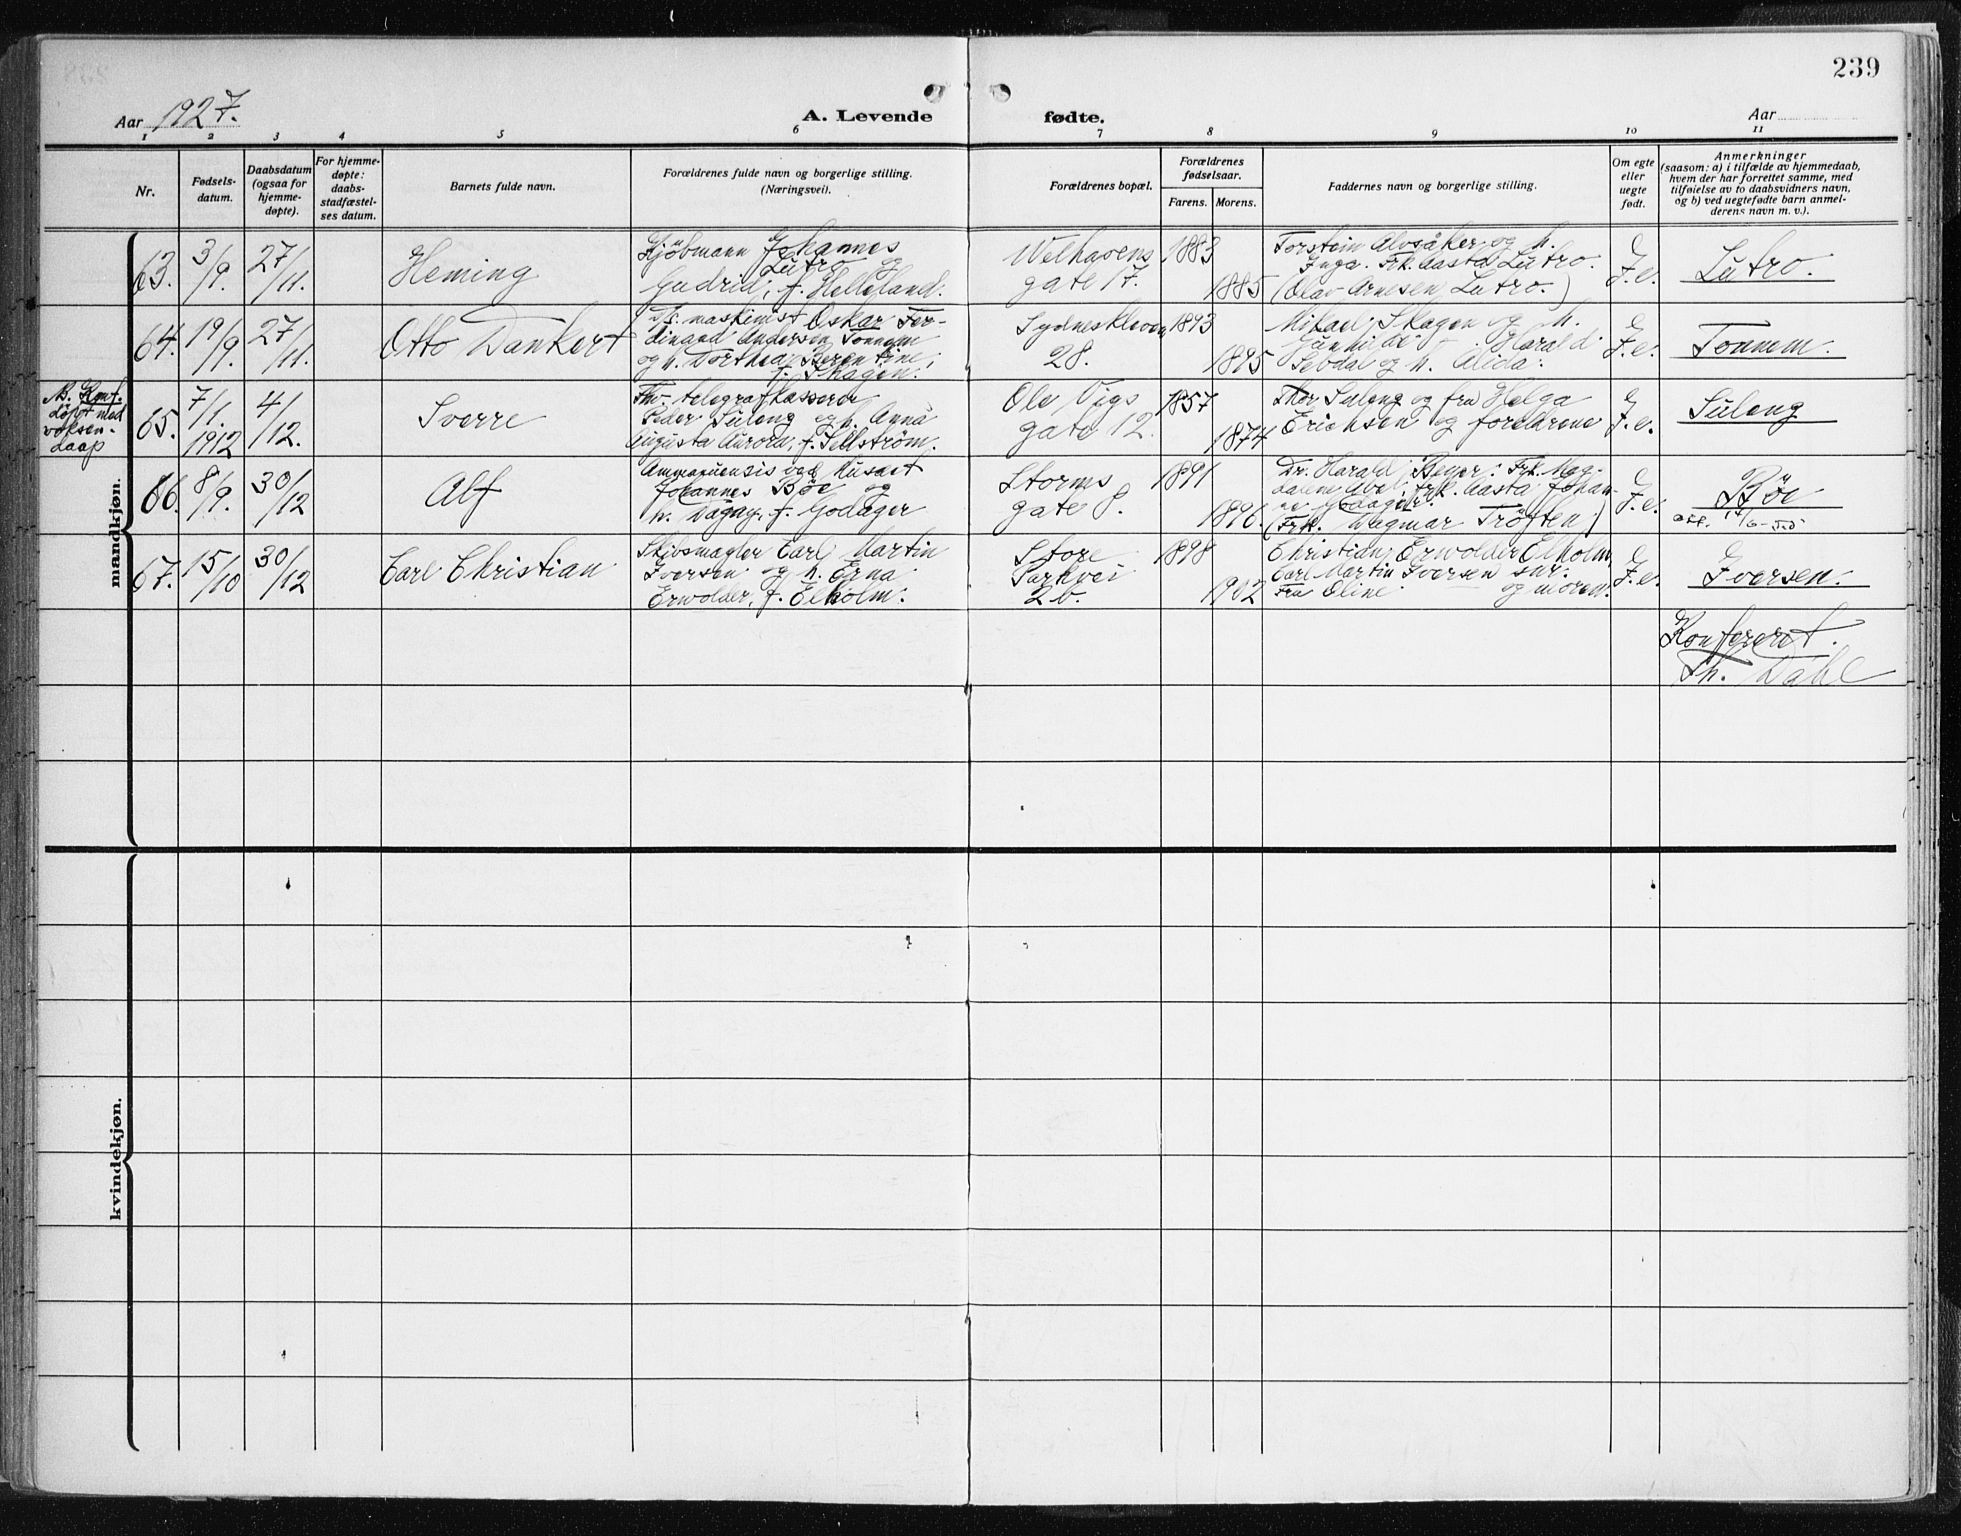 239
Aar 1927.
A. Levende fødte.
Aar
1 2 3 4 5 6 7 8 9 10 11
Nr.
Fødsels-
datum.
Daabsdatum
(ogsaa for
hjemme-
døpte).
For hjemme-
døpte:
daabs-
stadfæstel-
ses datum.
Barnets fulde navn.
Forældrenes fulde navn og borgerlige stilling.
(Næringsvei).
Forældrenes bopæl.
Forældrenes
fødselsaar.
Farens. Morens.
Faddernes navn og borgerlige stilling.
Om egte
eller
uegte
født.
Anmerkninger
(saasom: a) i tilfælde av hjemmedaab,
hvem der har forrettet samme, med
tilføielse av to daabsvidners navn,
og b) ved uegtefødte barn anmel-
derens navn m. v.).
mandkjøn.
63.
3/9.
27/11.
Heming
Kjöbmann Johannes
Lutro og
Gudrid, f. Helleland.
Welhavens
gate 17.
1883
1885
Torstein Alvsåker og h.
Inga. Frk. Aasta Lutro.
(Olav Arnesen Lutro.)
I.e.
Lutro.
64.
19/9.
27/11.
Otto Dankert
maskinist Oskar Fer-
dinand Andersen Tonnem
og h. Dorthea Berentine,
f. Skagen.
Sydneskleven
28.
1893
1895
Mikael Skagen og h.
Gunhild - Harald
Sevdal og h. Alida.
I.e.
Tonnem.
døpt med
voksen-
daap
65.
7/1.
1912
4/12.
Sverre
Fhv. telegrafkasserer
Peder Suleng og h. Anna
Augusta Aurora, f. Sellström.
Ole Vigs
gate 12.
1857
1874
Thor Suleng og fru Helga
Erichsen og foreldrene
I.e.
Suleng
66.
8/9.
30/12
Alf
Ammanuensis ved Museet
Johannes Böe og
h. Dagny, f. Godager
Storms
gate 8.
1891
1896.
Dr. Harald Beyer. Frk. Mag-
dalene Frk. Aasta Johan-
ne Godager.
(Frk. Dagmar Tröften)
I.e.
Böe
67.
15/10
30/12
Carl Christian
Skibsmegler Carl Martin
Iversen og h. Erna
Erwolder, f. Elholm.
Store
Parkvei
2b.
1898
1902
Christian Erwolder Elholm,
Carl Martin Iversen snr.
Fru Eline og moren.
I.e.
Iversen.
Konfereret.
Th. Dahl
kvindekjøn.